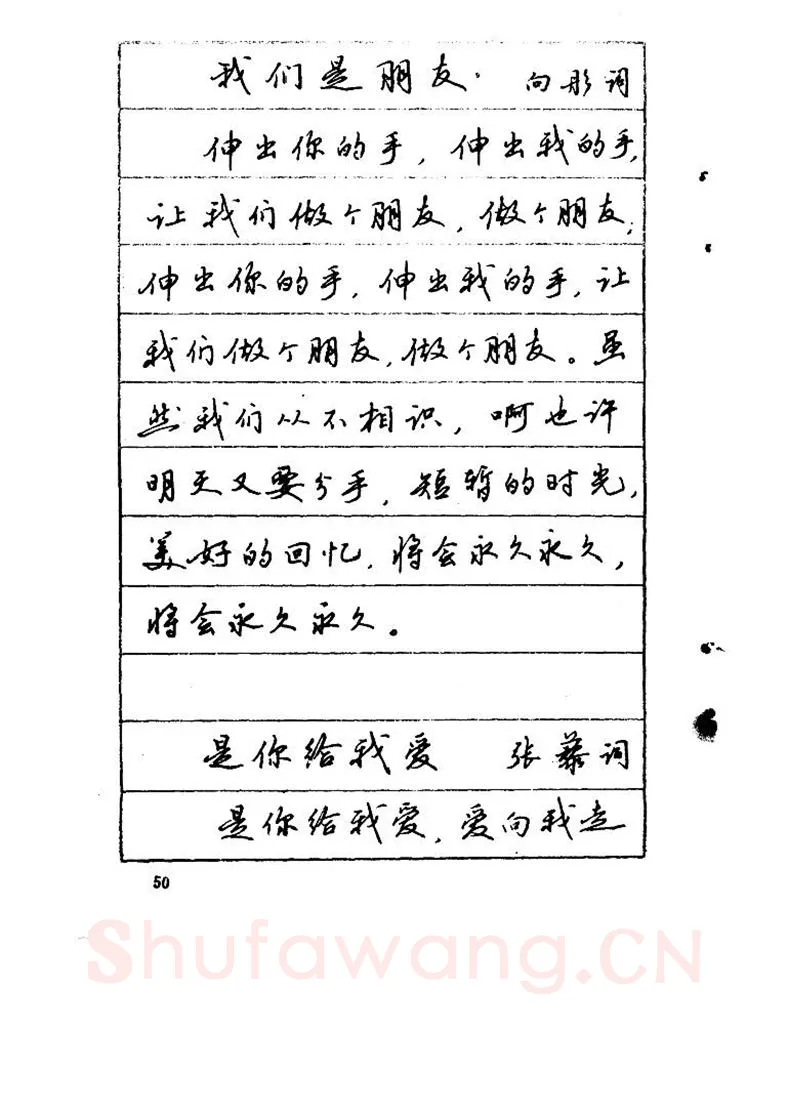 我们是朋友· 向彤词
伸出你的手，伸出我的手，
让我们做个朋友，做个朋友；
伸出你的手，伸出我的手，让
我们做个朋友，做个朋友。虽
然我们从不相识，啊也许
明天又要分手，短暂的时光，
美好的回忆，将会永久永久，
将会永久永久。
是你给我爱 张藜词
是你给我爱，爱向我走
50
Shufawang.CN